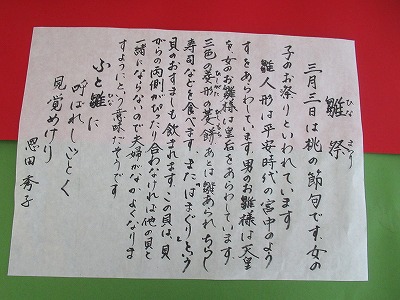 雛祭
ひな まつり
三月三日は桃の節句です。女の
子のお祭りといわれています
雛人形は平安時代の宮中のよう
すをあらわしています。男のお雛様は天皇
を、女のお雛様は皇后をあらわしています。
三色の菱形の菱餅あとは雛あられ、ちらし
ひしがた ひしもち
寿司などを食べます。また「はまぐり」という
貝のおすましも飲まれます。この貝は、貝
がらの両側がぴったり合わなければ他の貝と
一緒にならないので夫婦がなかよくなりま
すようにという意味だそうです
ふと雛に
ひな
呼ばれしごとく
見覚めけり
恩田秀子